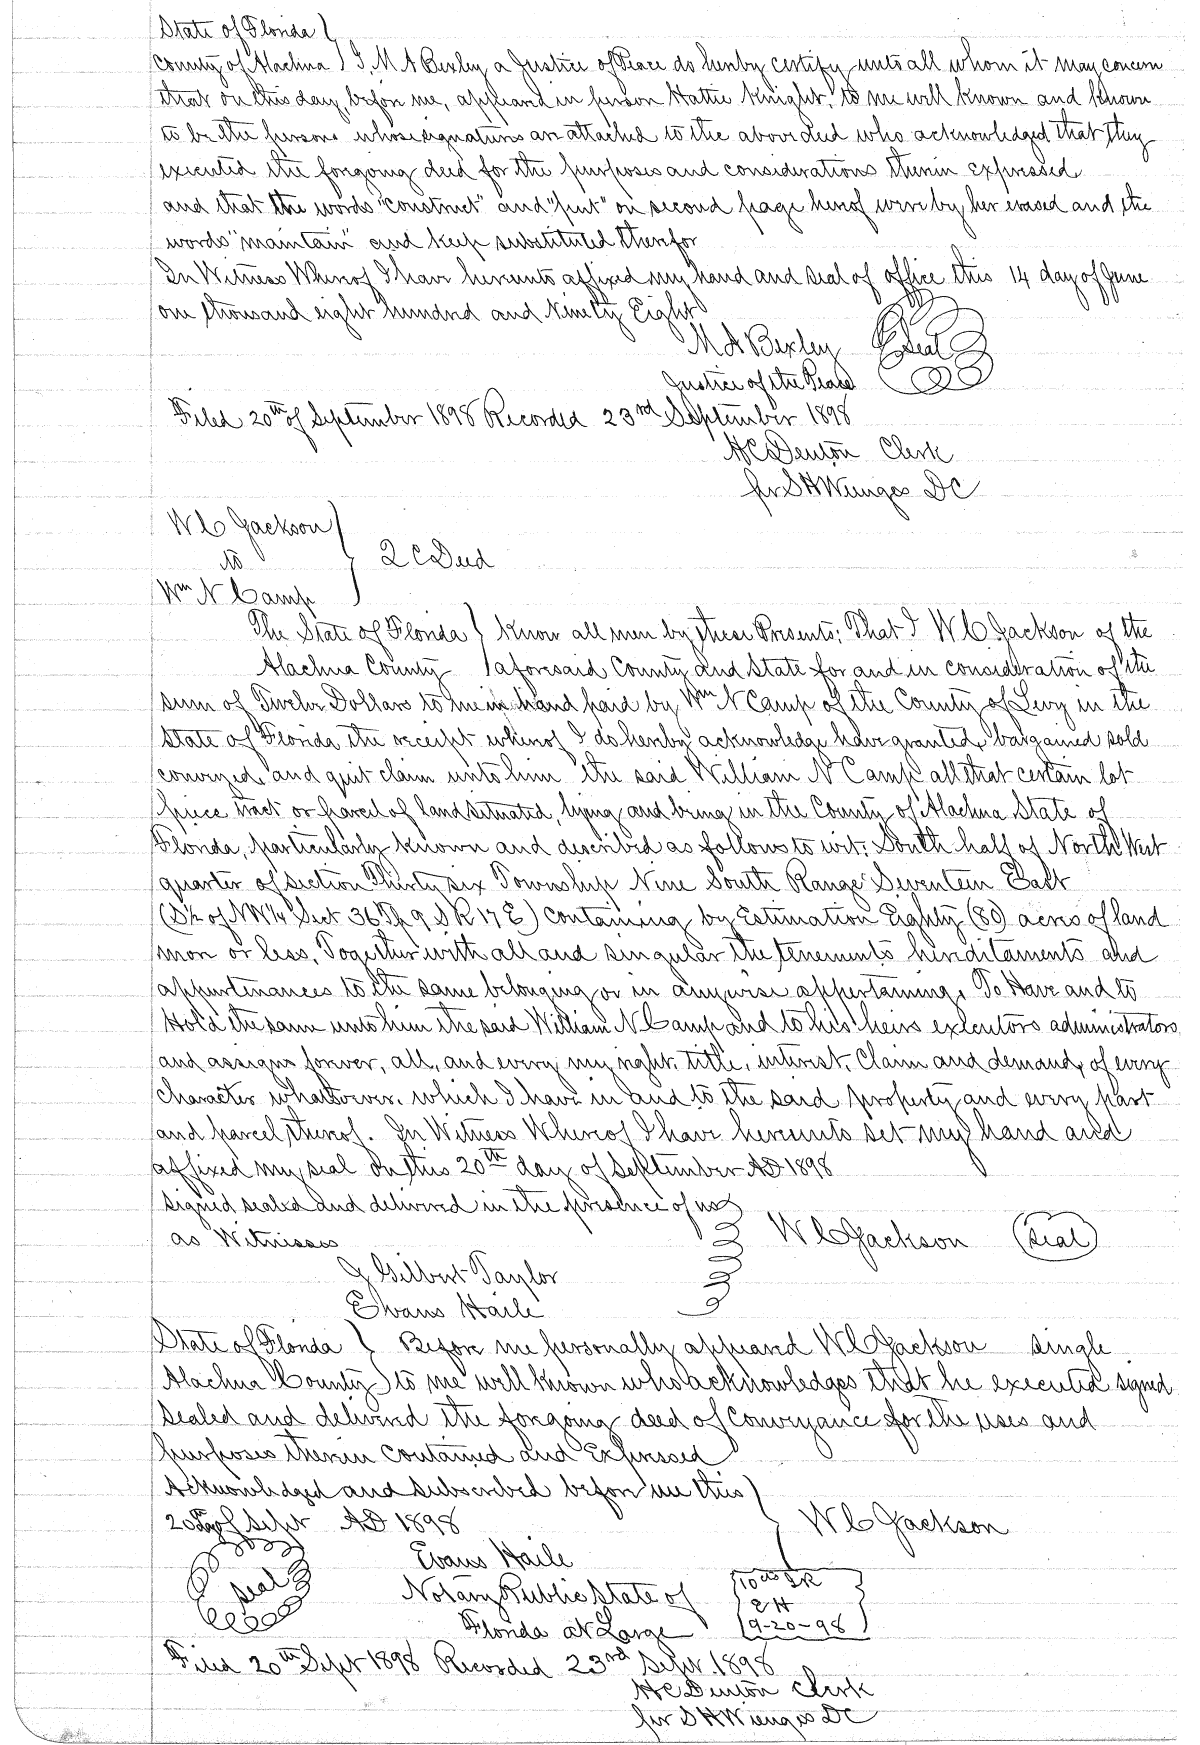 State of Florida }
County of Alachua } I, M A Bexley a Justice of Peace do hereby certify unto all whom it may concern
that on this day, before me, appeared in person Hattie Knight, to me well known and known
to be the persons whose signatures are attached to the above deed who acknowledged that they
executed the forgoing deed for the purposes and considerations therein expressed
and that the words "construct" and "put" on second page hereof were by her erased and the
words "maintain" and keep substituted therefor
In Witness Whereof I have hereunto affixed my hand and seal of office this 14 day of June
one thousand eight hundred and Ninety Eight
M A Bexley Seal
Justice of the Peace
Filed 20th of September 1898 Recorded 23rd September 1898
H C Denton Clerk
per S H Wienges DC
W C Jackson }
to } 2 C Deed
Wm N Camp }
The State of Florida } Know all men by these Presents: That I W C Jackson of the
Alachua County } aforesaid County and State for and in consideration of the
sum of Twelve Dollars to me in hand paid by Wm N Camp of the County of Levy in the
State of Florida the receipt whereof I do hereby acknowledge have granted, bargained sold
conveyed, and quit claim unto him the said William N Camp all that certain lot
piece tract or parcel of land situated, lying and being in the County of Alachua State of
Florida, particularly known and described as follows to wit: South half of North West
quarter of section Thirty six Township Nine South Range Seventeen East
(S½ of NW¼ Sect 36 Tp 9 S R 17 E) containing by Estimation Eighty (80) acres of land
more or less, Together with all and singular the tenements hereditaments and
appurtenances to the same belonging or in anywise appertaining, To Have and to
Hold the same unto him the said William N Camp and to his heirs executors administrators
and assigns forever, all, and every my right, title, interest, Claim and demand, of every
character whatsoever, which I have in and to the said property and every part
and parcel thereof. In Witness Whereof I have hereunto set my hand and
affixed my seal on this 20th day of September AD 1898
signed sealed and delivered in the presence of us }
as Witnesses W C Jackson (Seal)
J Gilbert Taylor
Evans Haile
State of Florida } Before me personally appeared W C Jackson single
Alachua County } to me well known who acknowledges that he executed signed
sealed and delivered the forgoing deed of Conveyance for the uses and
purposes therein contained and Expressed
Acknowledged and subscribed before me this }
20 day of Sept AD 1898 W C Jackson
Evans Haile
Seal Notary Public State of 10cts I R
Florida at Large E H
9-20-98
Filed 20th Sept 1898 Recorded 23rd Sept. 1898
H C Denton Clerk
per S H Wienges DC